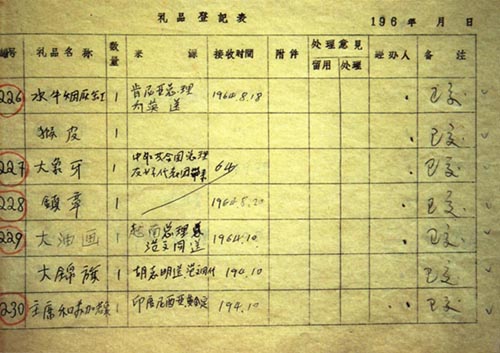 礼品登記表 196 年 月 日
編号 礼品名称 数量 来源 接收时間 附件 处理意見 經办人 备注
留用 处理
226 水牛烟灰缸 1 肯尼亚总理 1964.8.18 已交
送
猴皮 1 已交
227 大象牙 1 总理 64 已交
228 1 1964.8.20 已交
229 大油画 1 越南总理 1964.10. 已交
范文同送
大锦旗 1 胡志明送 194.10 已交
230 主席和苏加 1 印度尼西亚 194.10 已交